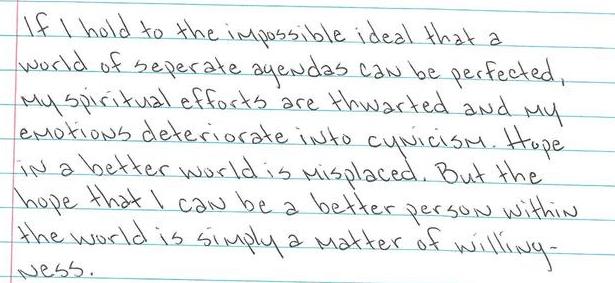 If I hold to the impossible ideal that a
world of seperate agendas can be perfected,
my spiritual efforts are thwarted and my
emotions deteriorate into cynicism. Hope
in a better world is misplaced. But the
hope that I can be a better person within
the world is simply a matter of willing-
ness.